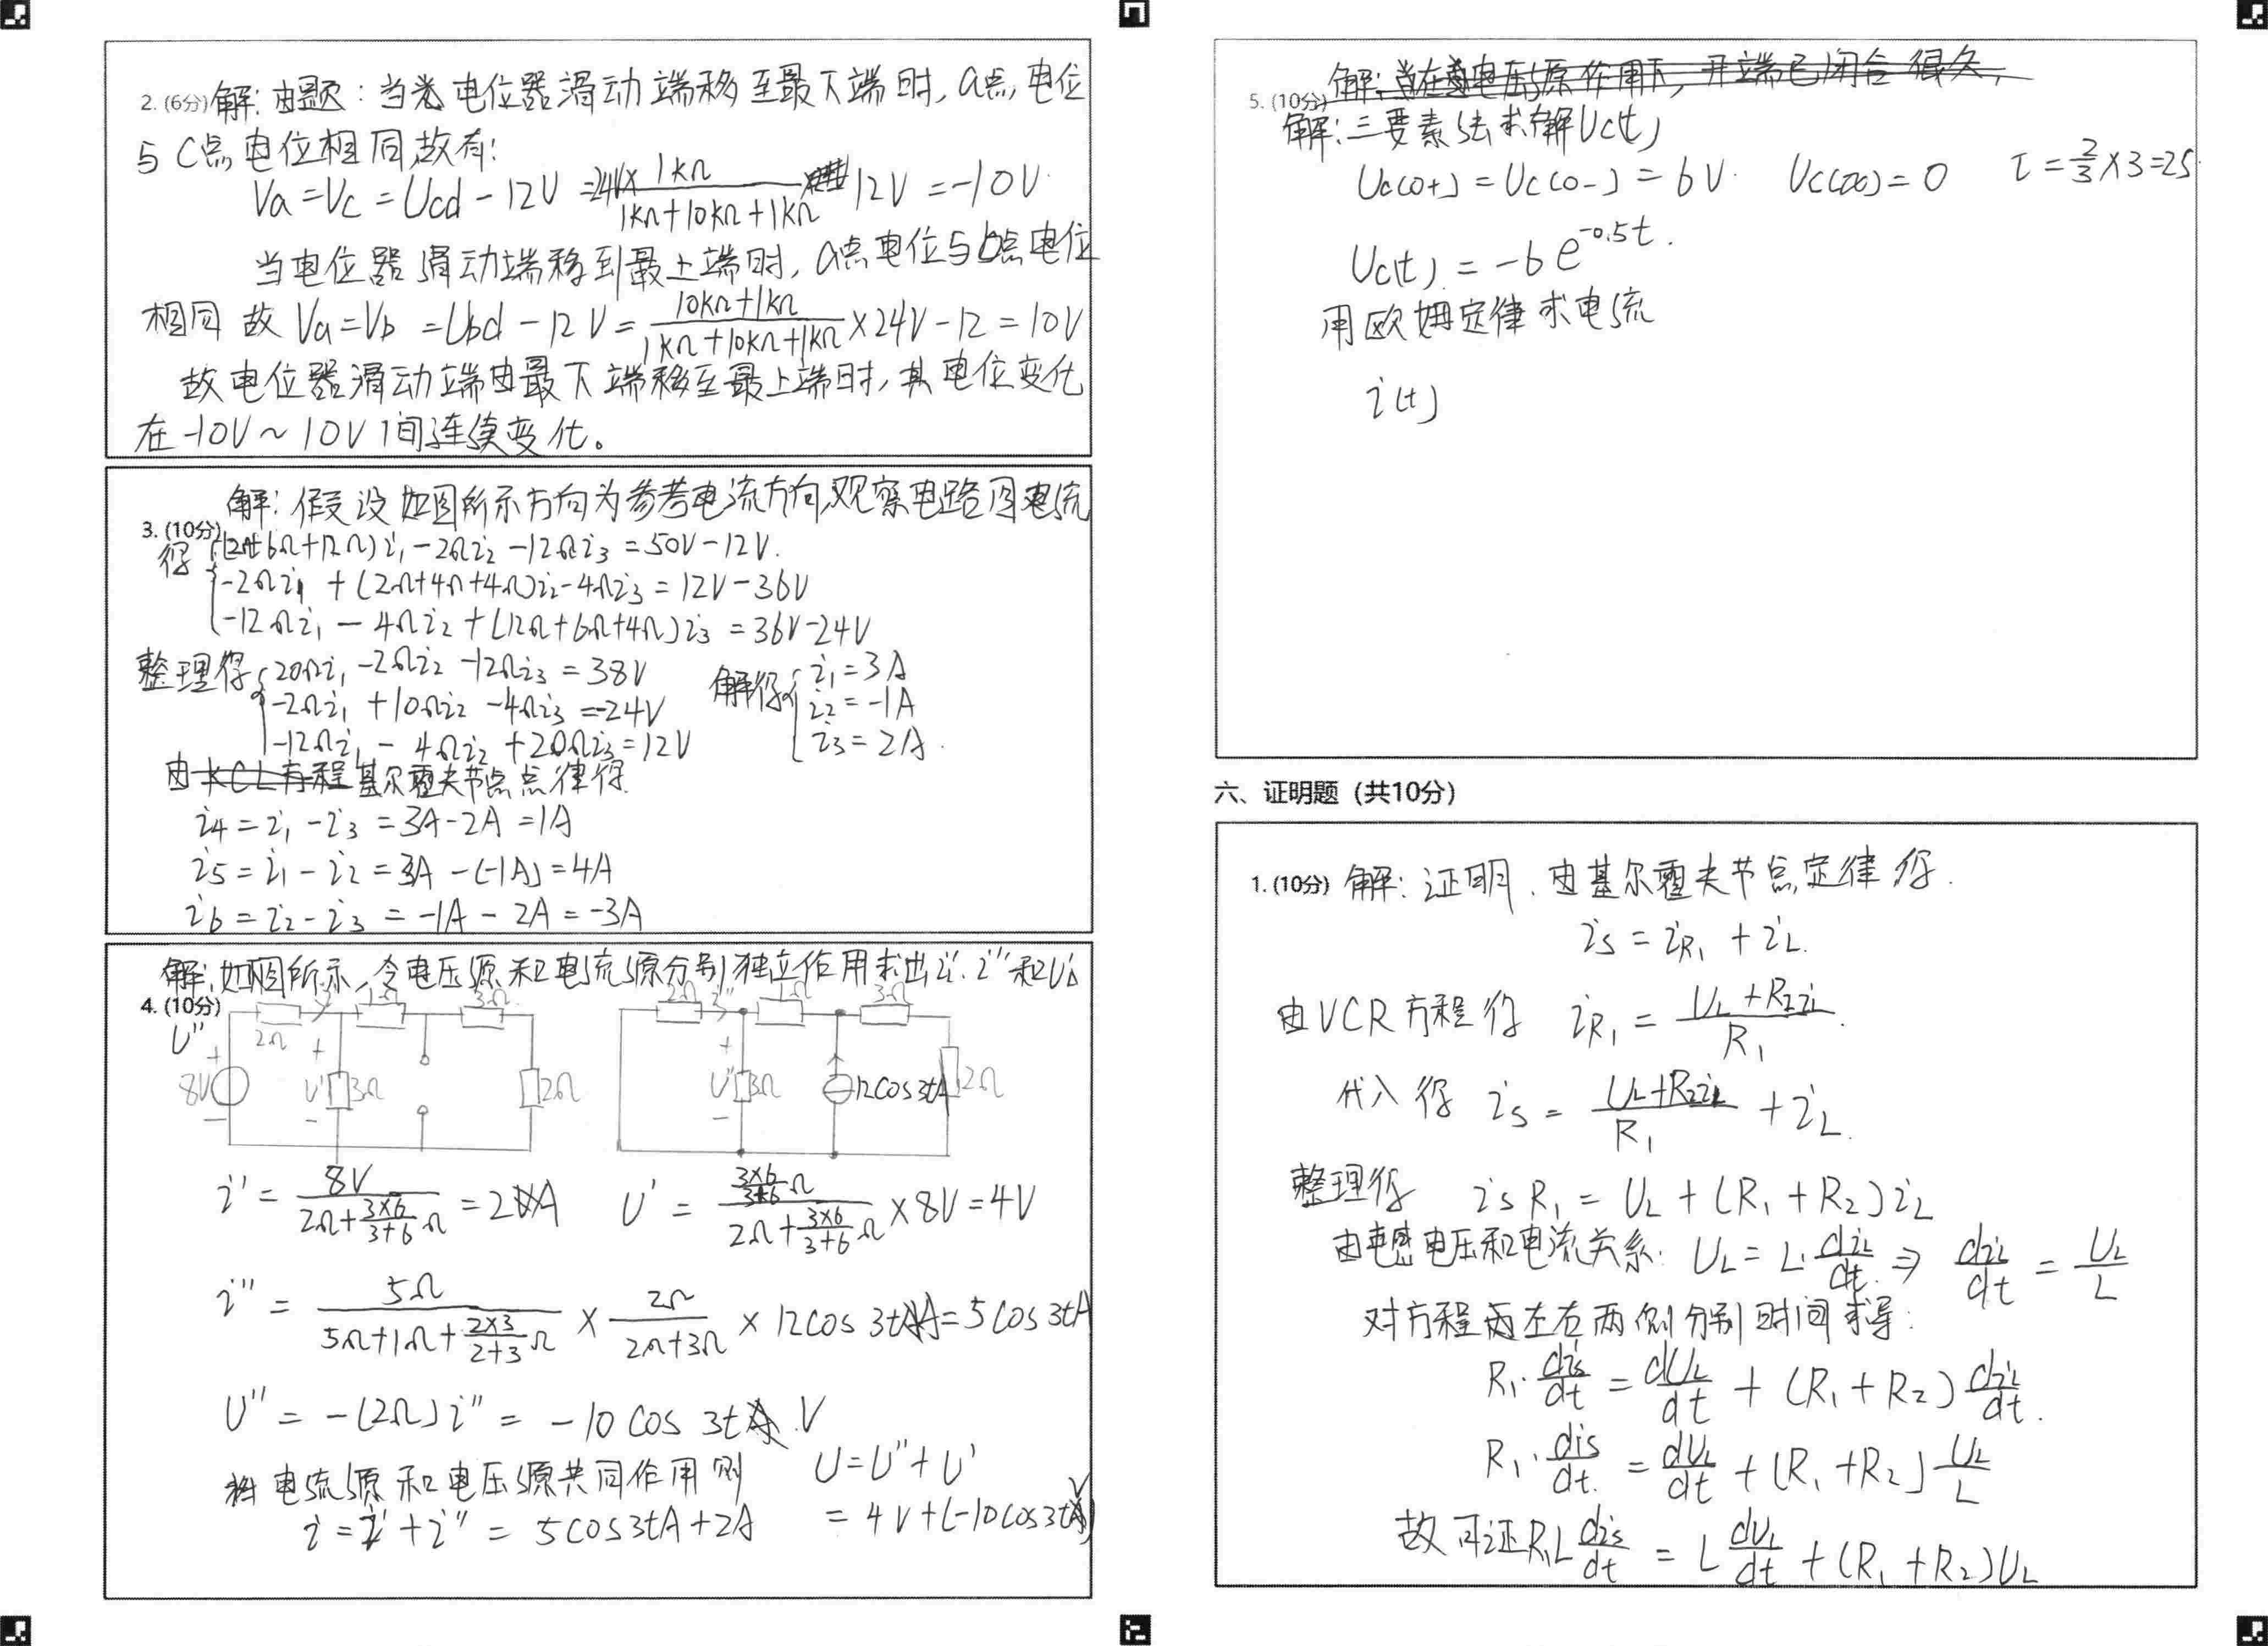 2. (6分) 解: 由题: 当 电位器滑动端移至最下端时, a点电位
与C点电位相同,故有:
Va = Vc = Ucd - 12V = 24V × 1kΩ/(1kΩ+10kΩ+1kΩ) 12V = -10V
当电位器滑动端移到最上端时, a点电位与b点电位
相同 故 Va=Vb = Ubd - 12V = (10kΩ+1kΩ)/(1kΩ+10kΩ+1kΩ) ×24V-12 = 10V
故电位器滑动端由最下端移至最上端时,其电位变化
在-10V ~ 10V间连续变化。
解: 假设如图所示方向为参考电流方向,观察电路 电流
3. (10分)
得 (2Ω+6Ω+12Ω)i₁ - 2Ωi₂ - 12Ωi₃ = 50V-12V.
-2Ωi₁ + (2Ω+4Ω+4Ω)i₂ - 4Ωi₃ = 12V-36V
-12Ωi₁ - 4Ωi₂ + (12Ω+6Ω+4Ω)i₃ = 36V-24V
整理得 20Ωi₁ -2Ωi₂ -12Ωi₃ = 38V
-2Ωi₁ +10Ωi₂ -4Ωi₃ =-24V
-12Ωi₁ - 4Ωi₂ +20Ωi₃=12V
解得 i₁=3A
i₂ = -1A
i₃ = 2A.
由KCL方程基尔霍夫节点点律得
i₄ = i₁ - i₃ = 3A-2A = 1A
i₅ = i₁ - i₂ = 3A - (-1A) = 4A
i₆ = i₂ - i₃ = -1A - 2A = -3A
解:如图所示,令电压源和电流源分别独立作用求出i'.i''和U'
4. (10分)
U''
2Ω 1Ω 3Ω
8V + - U' + - 3Ω 2Ω
2Ω i'' 1Ω 3Ω
+ U'' - 3Ω 12cos3tA 2Ω
i' = 8V/(2Ω+(3×6)/(3+6)Ω) = 2A
U' = ((3×6)/(3+6)Ω)/(2Ω+(3×6)/(3+6)Ω) ×8V=4V
i'' = 5Ω/(5Ω+1Ω+(2×3)/(2+3)Ω) × 2Ω/(2Ω+3Ω) × 12cos3tA = 5cos3tA
U'' = -(2Ω)i'' = -10cos3t V
将电流源和电压源共同作用则
U=U''+U'
= 4V+(-10cos3tV)
i = i' + i'' = 5cos3tA+2A
解: 当在 电压源作用下, 开端已闭合很久,
5. (10分)
解:三要素法求解Uc(t)
Uc(0+) = Uc(0-) = 6V. Uc(∞) = 0 τ = 2/3 ×3=2S.
Uc(t) = -6e^(-0.5t).
用欧姆定律求电流
i(t)
六、证明题 (共10分)
1. (10分) 解: 证明. 由基尔霍夫节点定律得.
iS = iR₁ + iL.
由VCR方程得 iR₁ = (UL+R₂iL)/R₁.
代入得 iS = (UL+R₂iL)/R₁ + iL.
整理得 iSR₁ = UL + (R₁+R₂)iL
由电感电压和电流关系: UL = L·diL/dt ⇒ diL/dt = UL/L
对方程两左右两侧分别时间求导:
R₁·diS/dt = dUL/dt + (R₁+R₂)diL/dt.
R₁·diS/dt = dUL/dt + (R₁+R₂)UL/L
故可证R₁L diS/dt = L dUL/dt + (R₁+R₂)UL